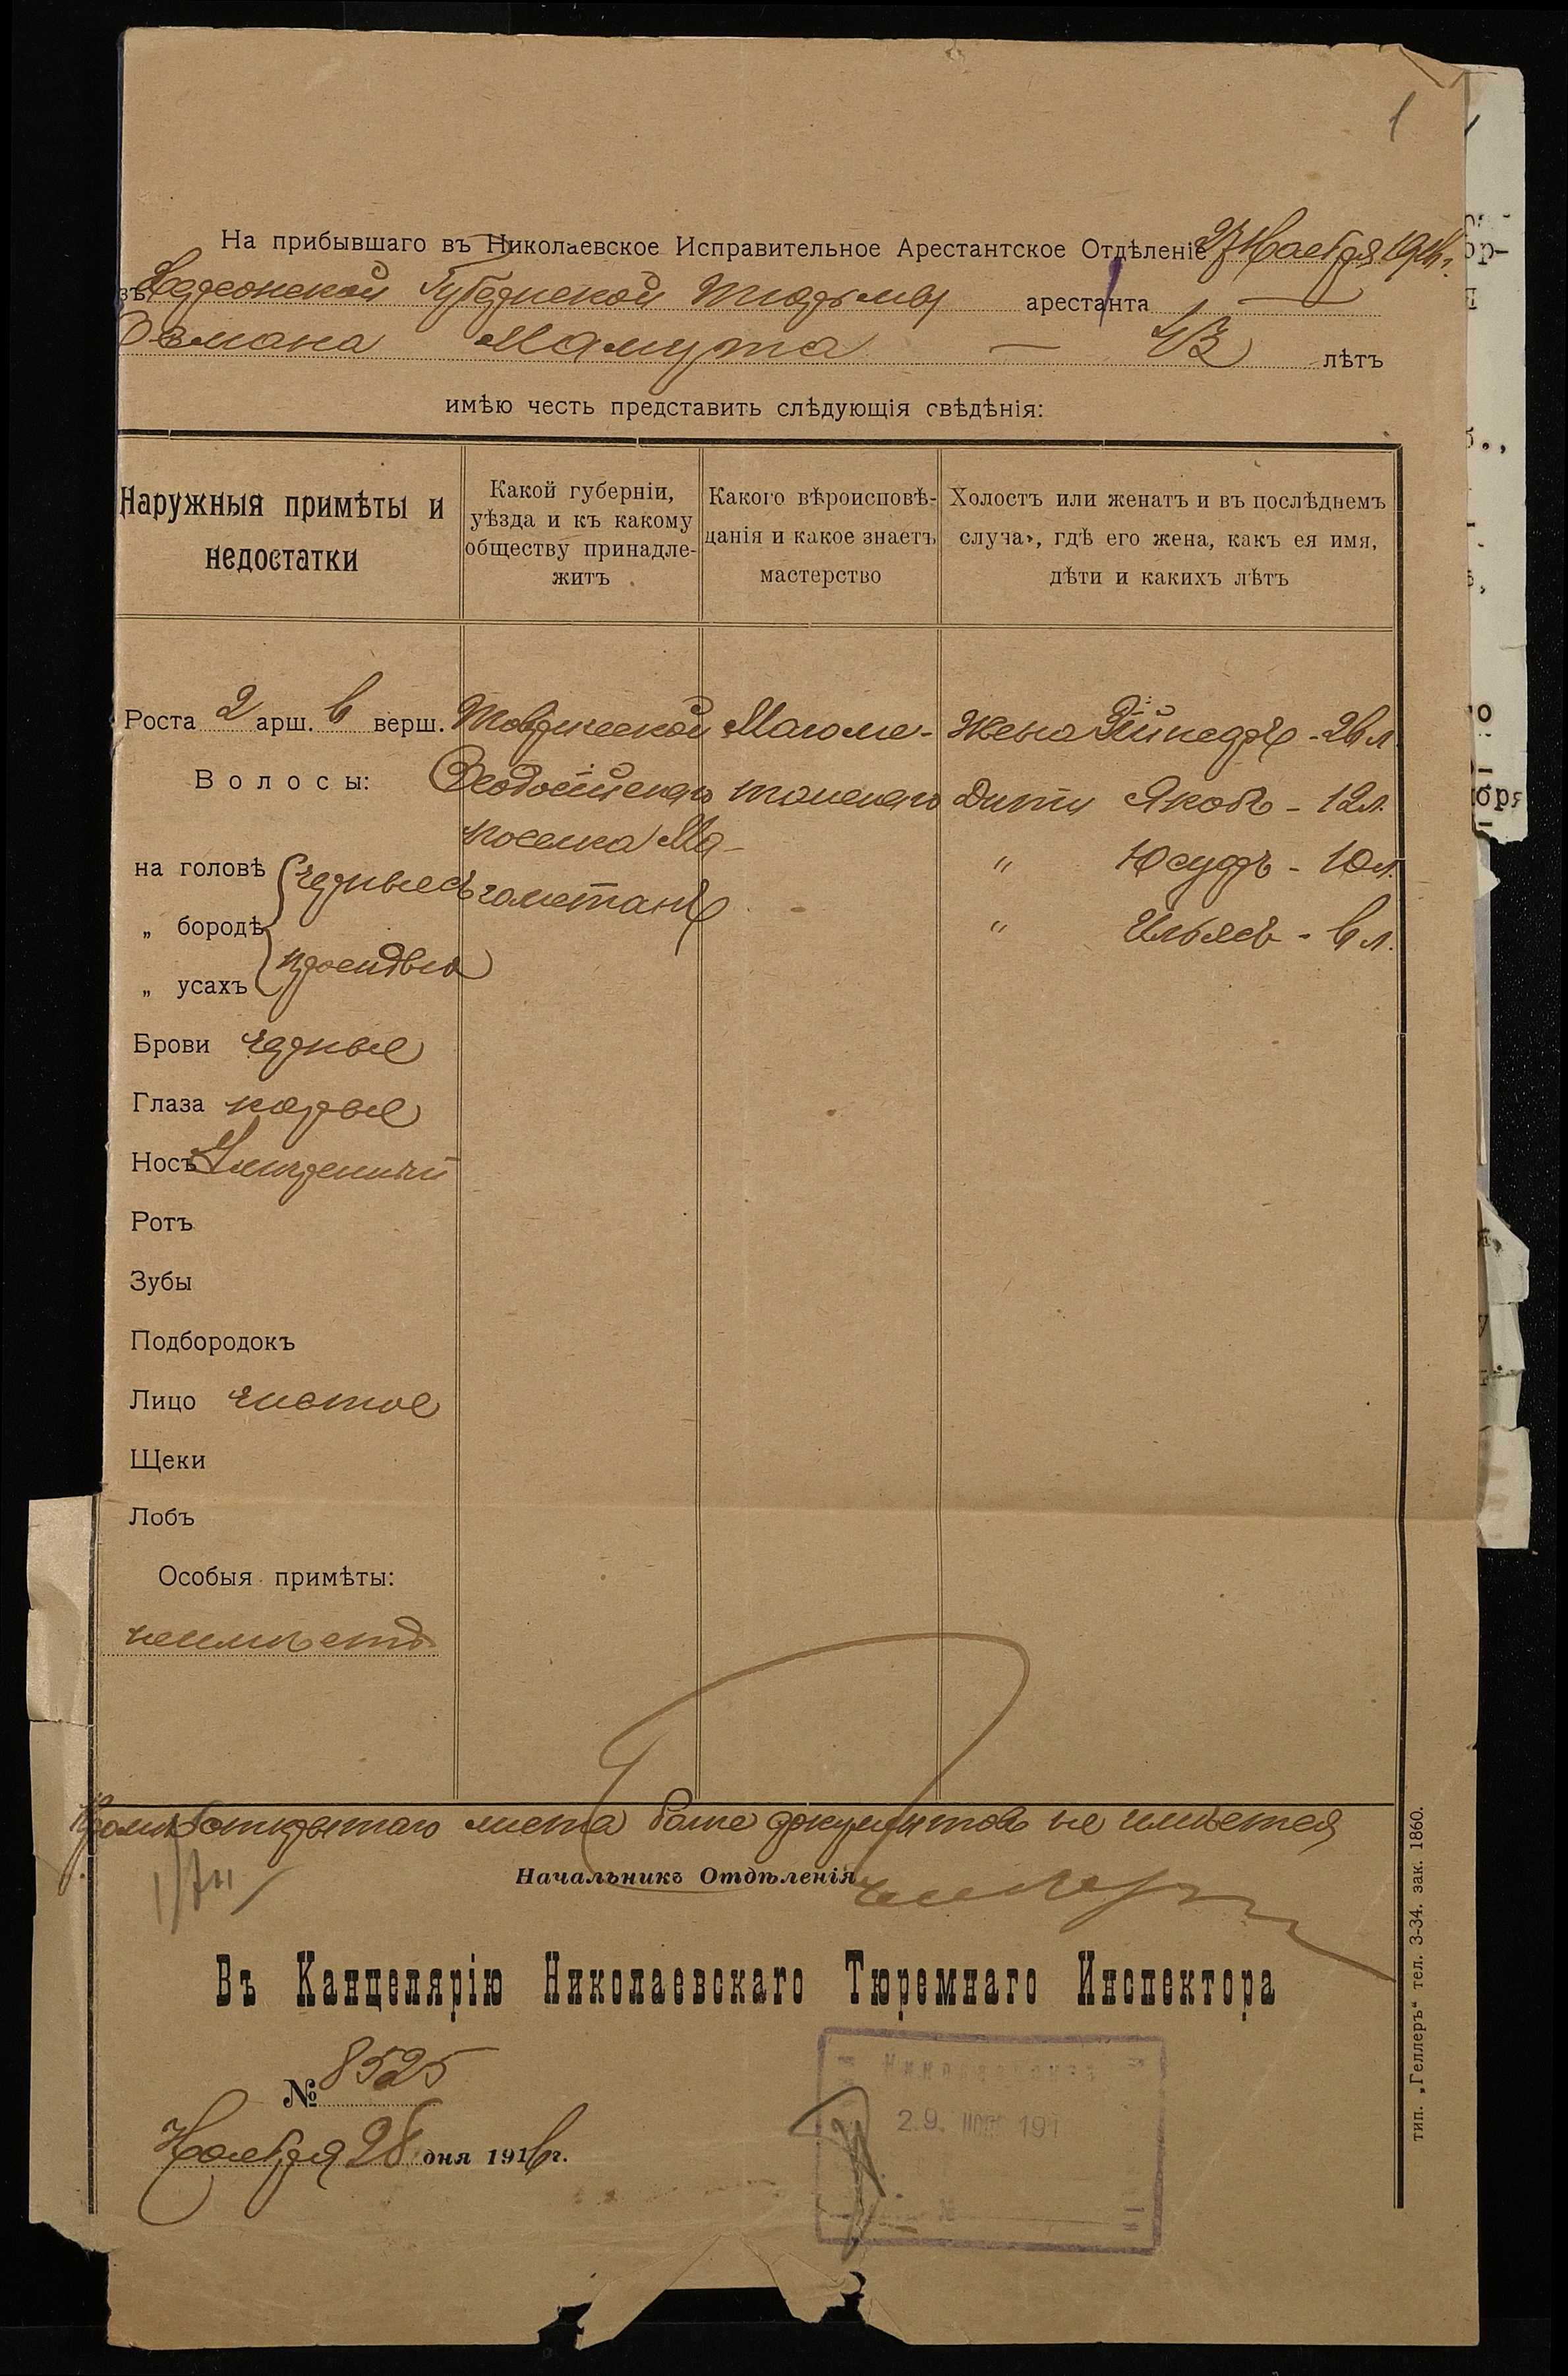 1
На прибывшаго въ Николаевское Исправительное Арестантское Отдѣленіе 27 Ноября 1916 г.
зъ Херсонской Губернской Тюрьмы арестанта
Османа Мамута — 43 лѣтъ
имѣю честь представить слѣдующія свѣдѣнія:
Наружныя примѣты и
недостатки
Какой губерніи,
уѣзда и къ какому
обществу принадле-
житъ
Какого вѣроисповѣ-
данія и какое знаетъ
мастерство
Холостъ или женатъ и въ послѣднемъ
случаѣ, гдѣ его жена, какъ ея имя,
дѣти и какихъ лѣтъ
Роста 2 арш. 6 верш.
Волосы:
на головѣ
„ бородѣ
„ усахъ
черные съ
просѣдью
Брови черные
Глаза карые
Носъ Умѣренный
Ротъ
Зубы
Подбородокъ
Лицо чистое
Щеки
Лобъ
Особыя примѣты:
неимѣетъ
Таврической
Феодосійскаго
поселка Ма-
Магоме-
танскаго
Жена - 26 л.
Дѣти Якобъ - 12 л.
„ Юсуфъ - 10 л.
„ Ильясъ - 6 л.
Кромѣ открытаго листа болѣе документовъ не имѣется
Начальникъ Отдѣленія
Въ Канцелярію Николаевскаго Тюремнаго Инспектора
№ 8525
Ноября 28 дня 1916 г.
29. НОЯ 191
тип. „Геллеръ" тел. 3-34. зак. 1860.